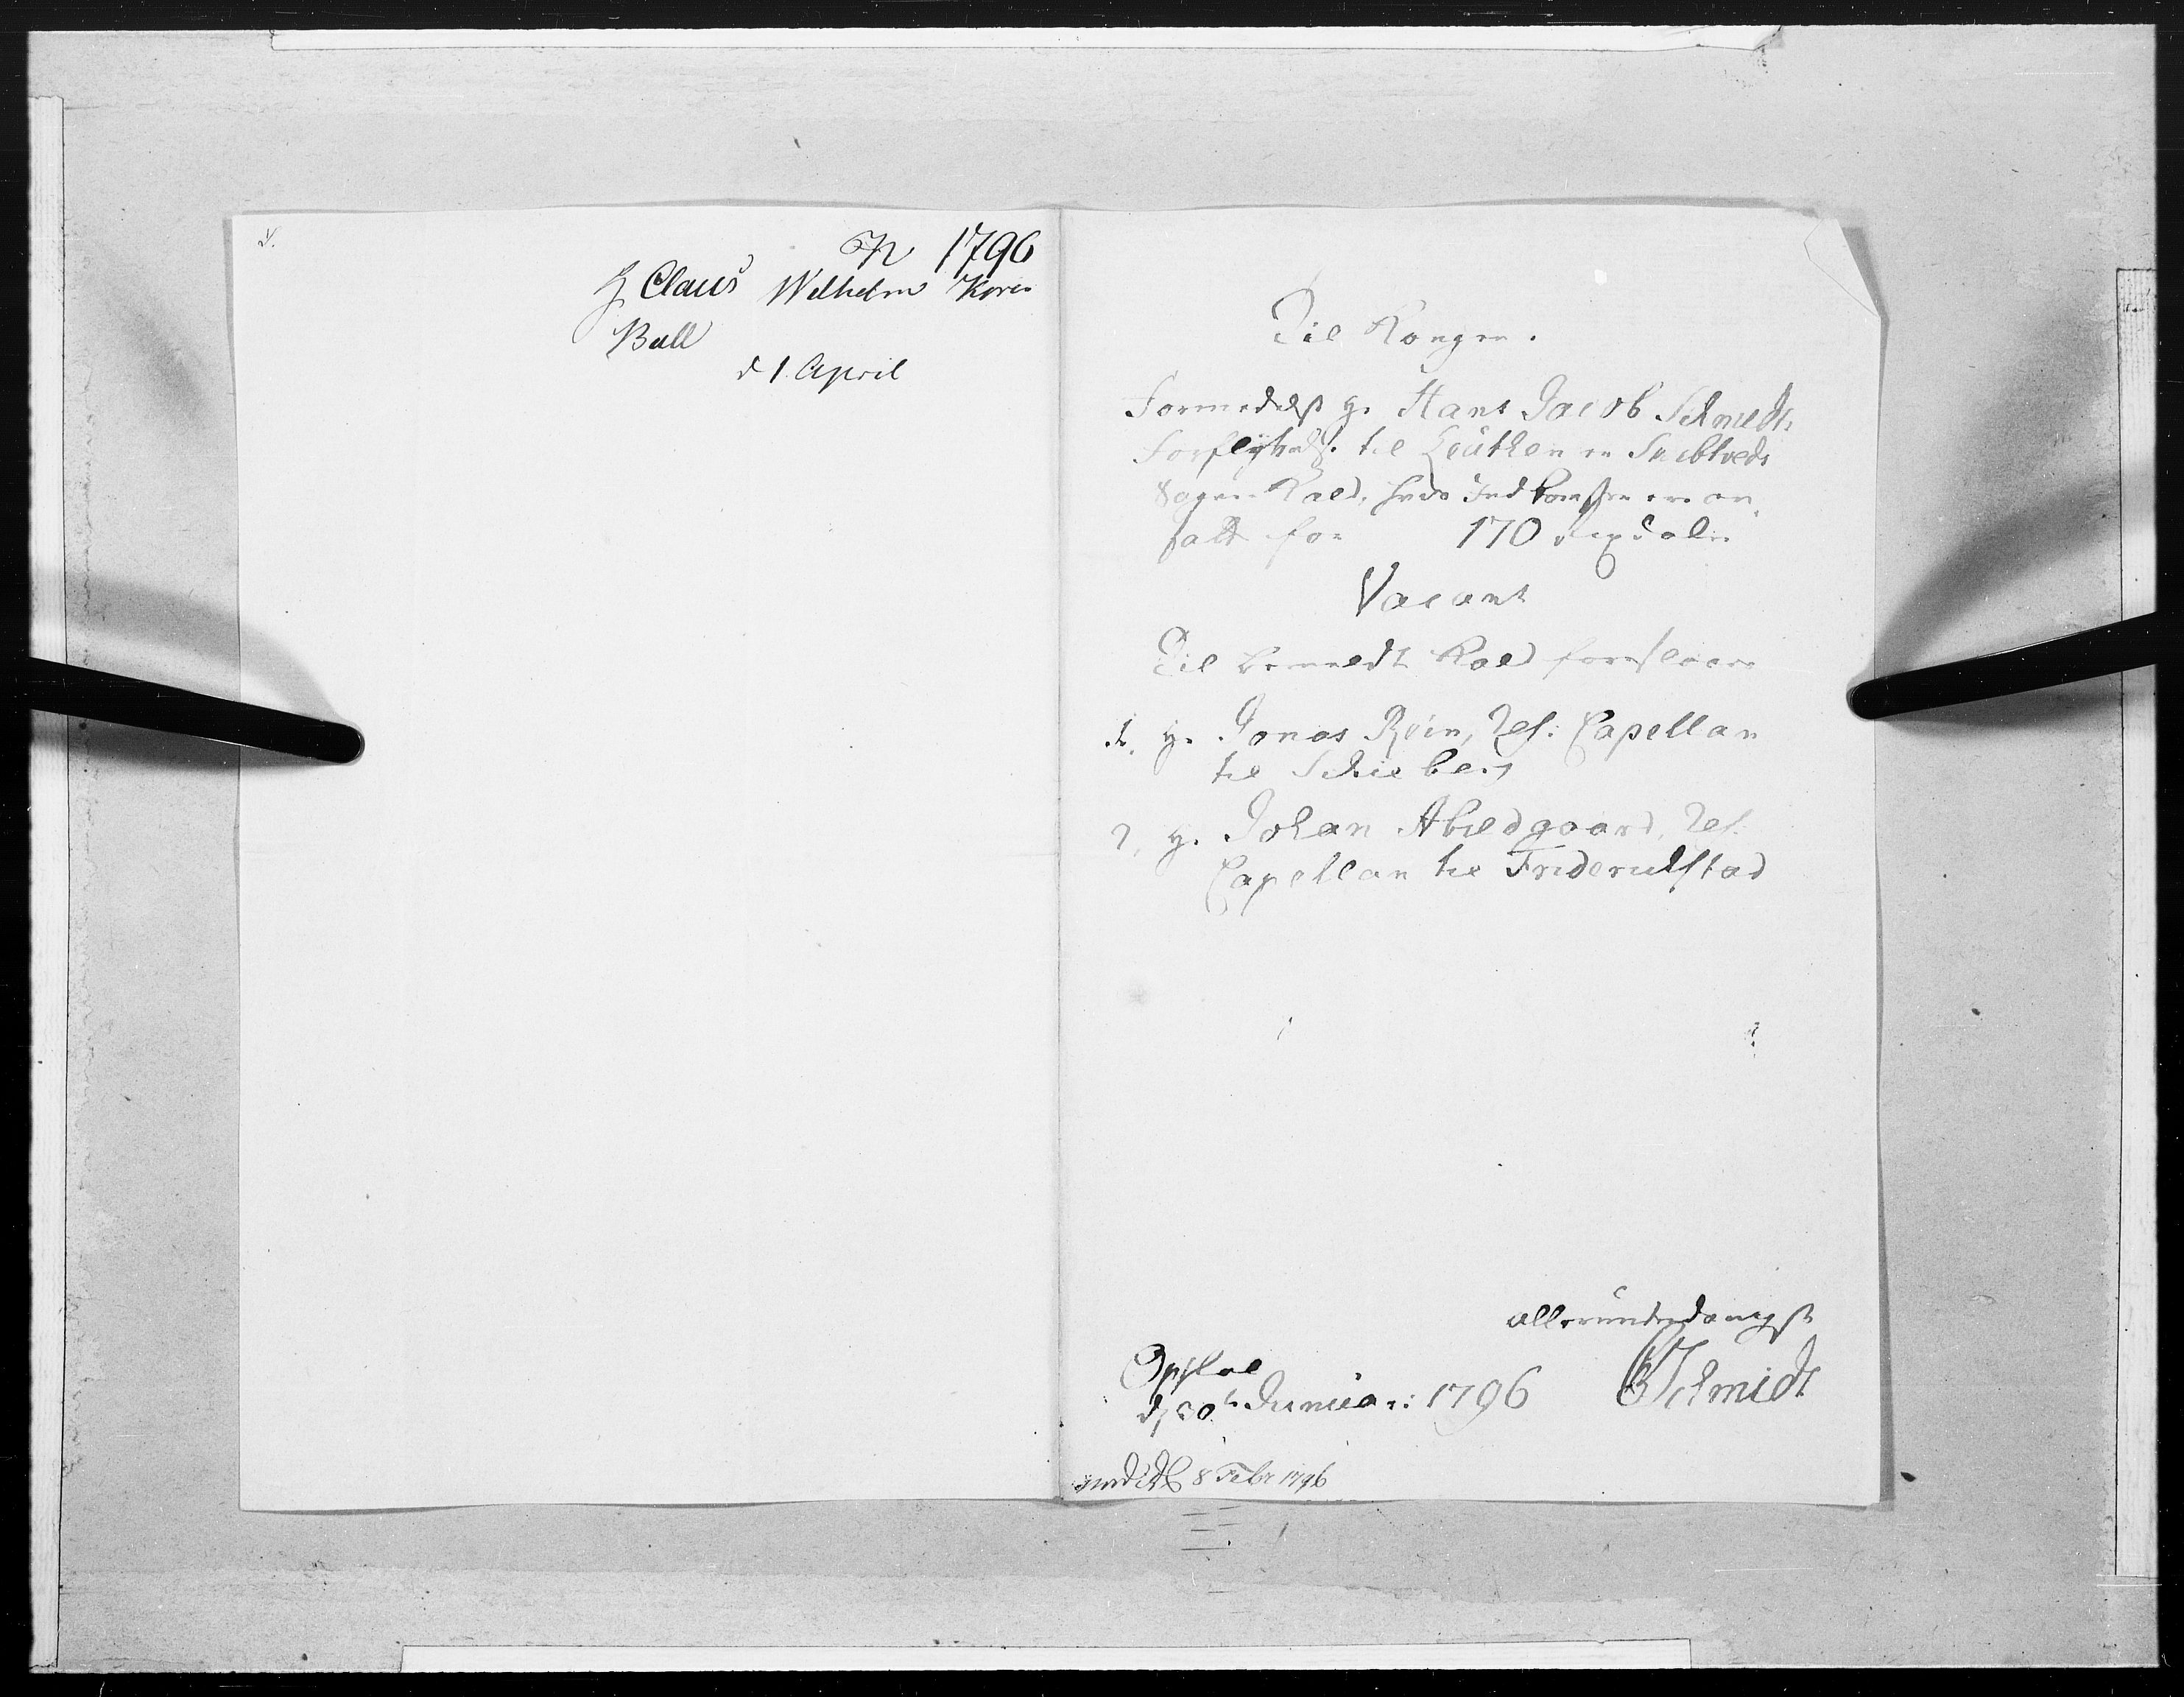 1796
H Claus Wilhelm Koren
Bull
d 1. April
Til Kongen.
Formedelst Hr. Hans Jacob Schmidts
Forflyttelse til Leuthen er Snebtveds
Sogne-Kald, hvis Indkomster ere an-
satte for 170 Rixdaler
Vacant
Til bemeldte Kald foreslaaes
1, Hr. Jonas Rein, Res: Capellan
til Schieberg
2, Hr. Johan Abildgaard, Res:
Capellan til Fridericksstad
allerunderdanigst
Opsloe
d, 30te Januar: 1796 Schmidt
8 Febr 1796